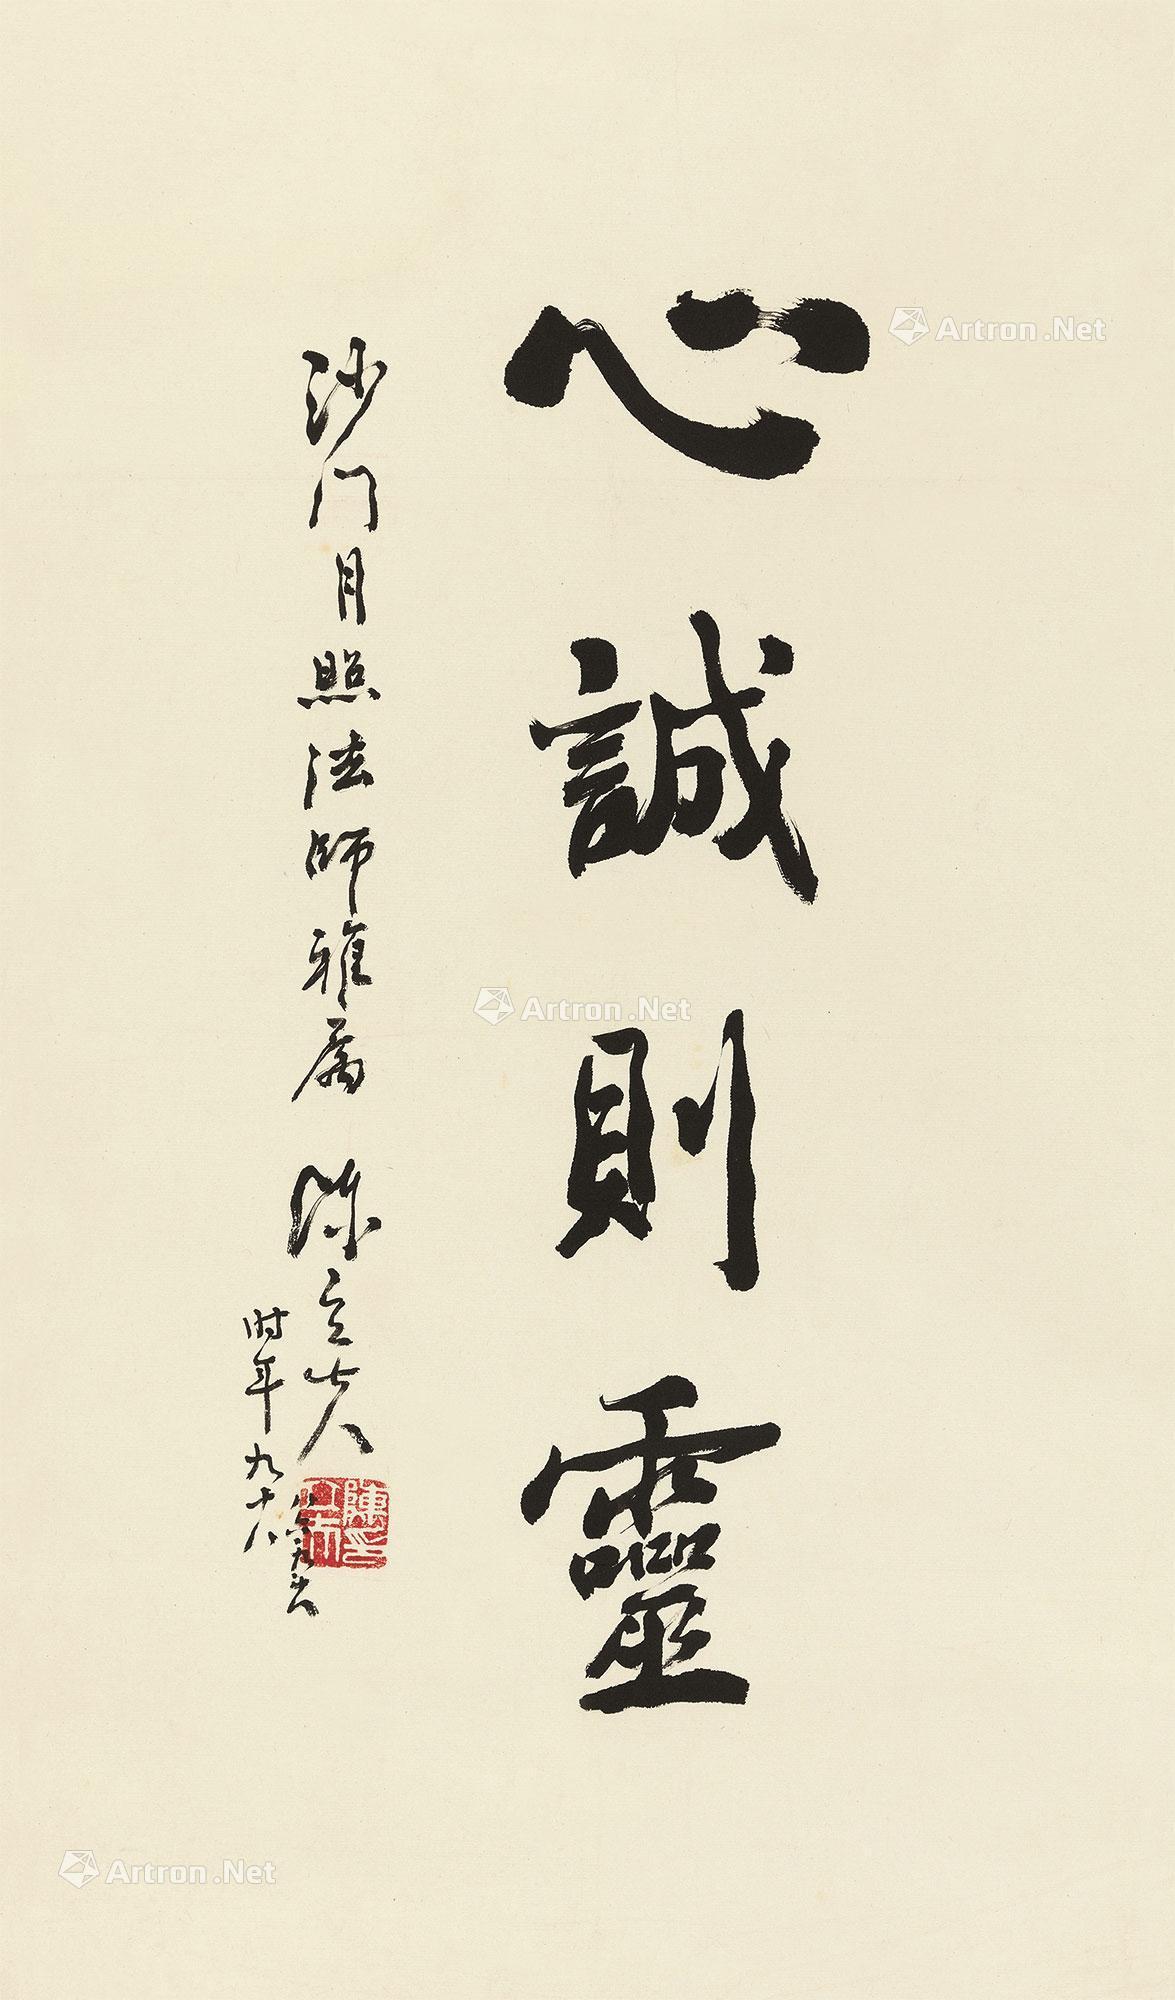 心誠則靈
沙门月照法師雅属 陳立夫
时年九十八
Artron.Net
Artron.Net
Artron.Net